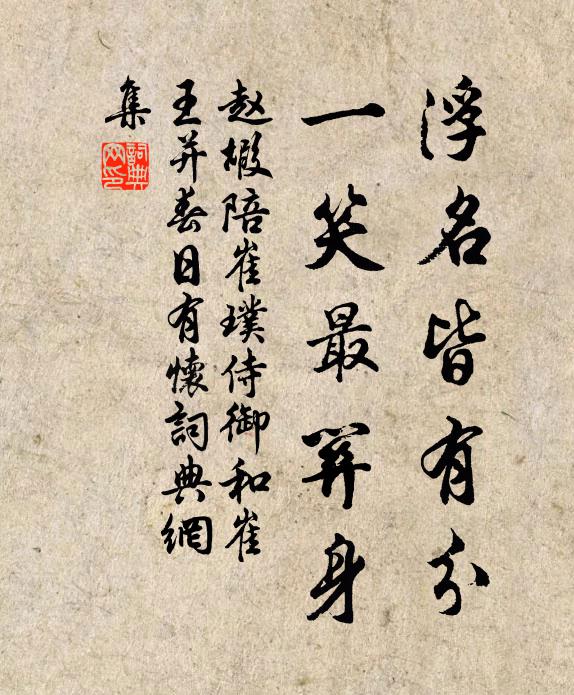 浮名皆有分
一笑最關身
赵嘏陪崔璞侍御和崔
王并春日有懷詞典網
集
詞典網印